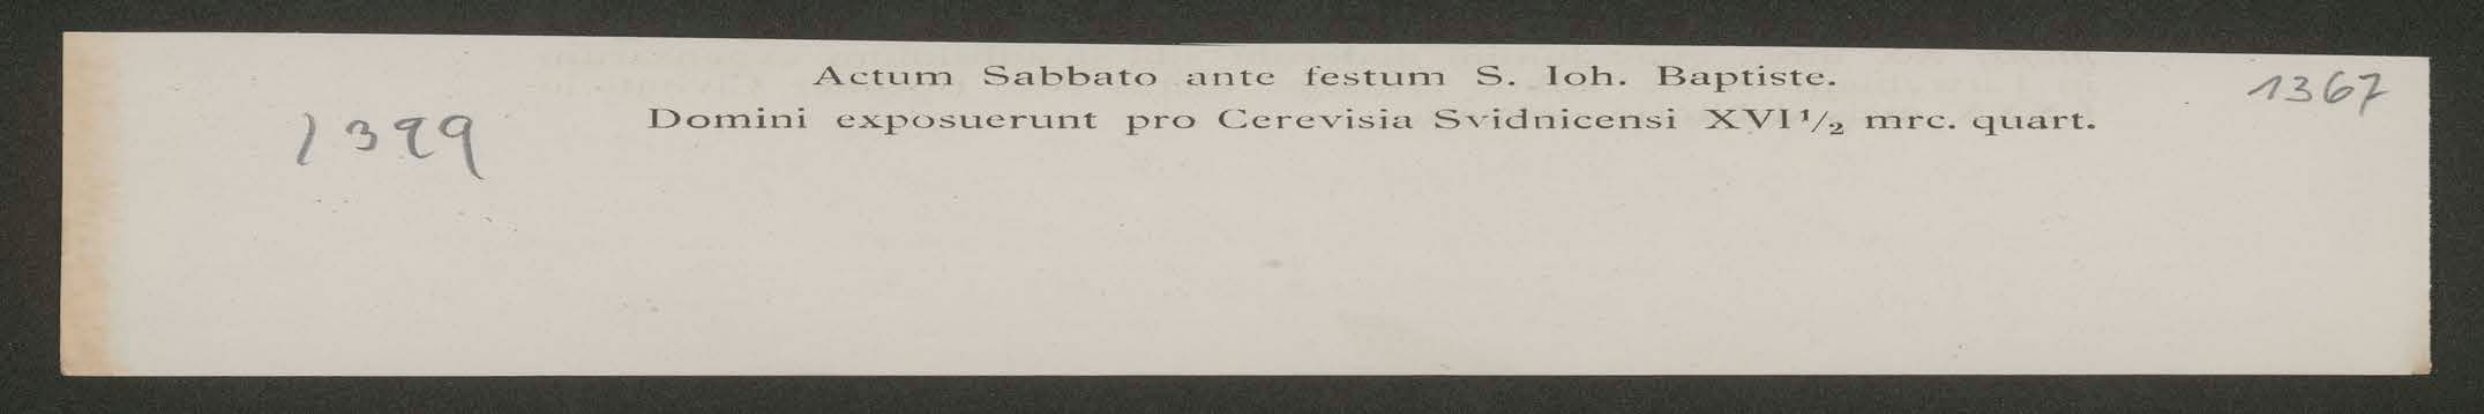 Actum Sabbato ante festum S. Ioh. Baptiste.
1367
Domini exposuerunt pro Cerevisia Svidnicensi XVI 1/2 mrc. quart.
1399